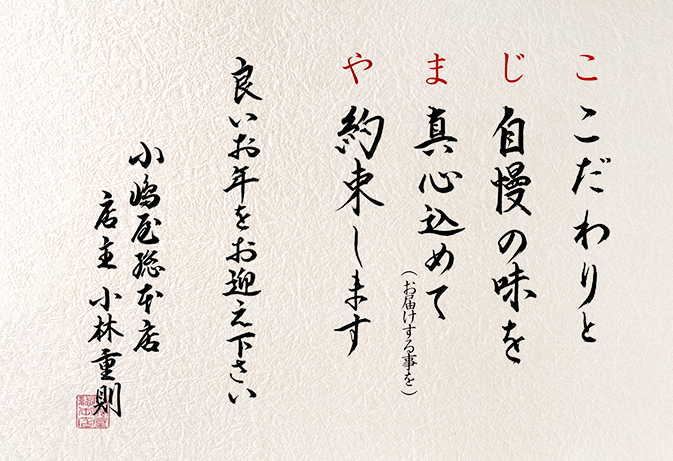 こ こだわりと
じ 自慢の味を
ま 真心込めて
（お届けする事を）
や 約束します
良いお年をお迎え下さい
小嶋屋総本店
店主 小林重則